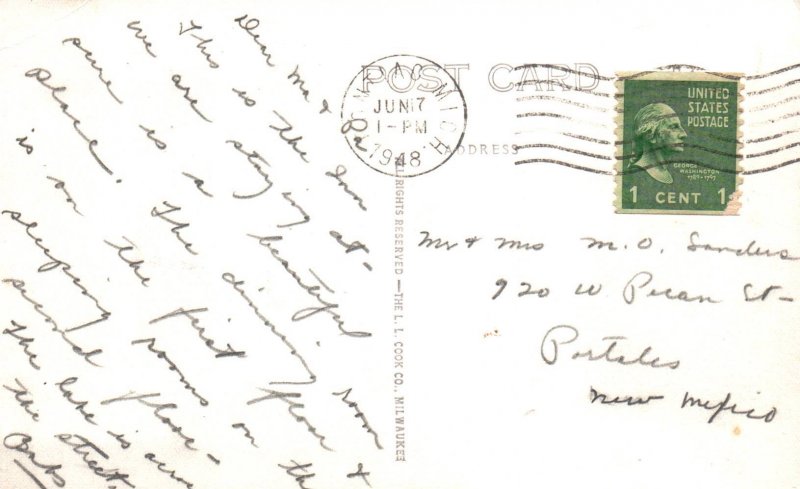 Dear Ma & Pa
This is the Inn
we are staying at-
sure is a beautiful
place. The dinning room
is on the first floor &
sleeping rooms on the
second floor-
The lake is across
the street,
Barbs
POST CARD
ADDRESS
JUN 17
1-PM
1948
MICH.
UNITED
STATES
POSTAGE
GEORGE
WASHINGTON
1789-1797
1 CENT 1
ALL RIGHTS RESERVED—THE L. L. COOK CO., MILWAUKEE
Mr & Mrs M. O. Sanders
920 W Pecan St-
Portales
New Mexico